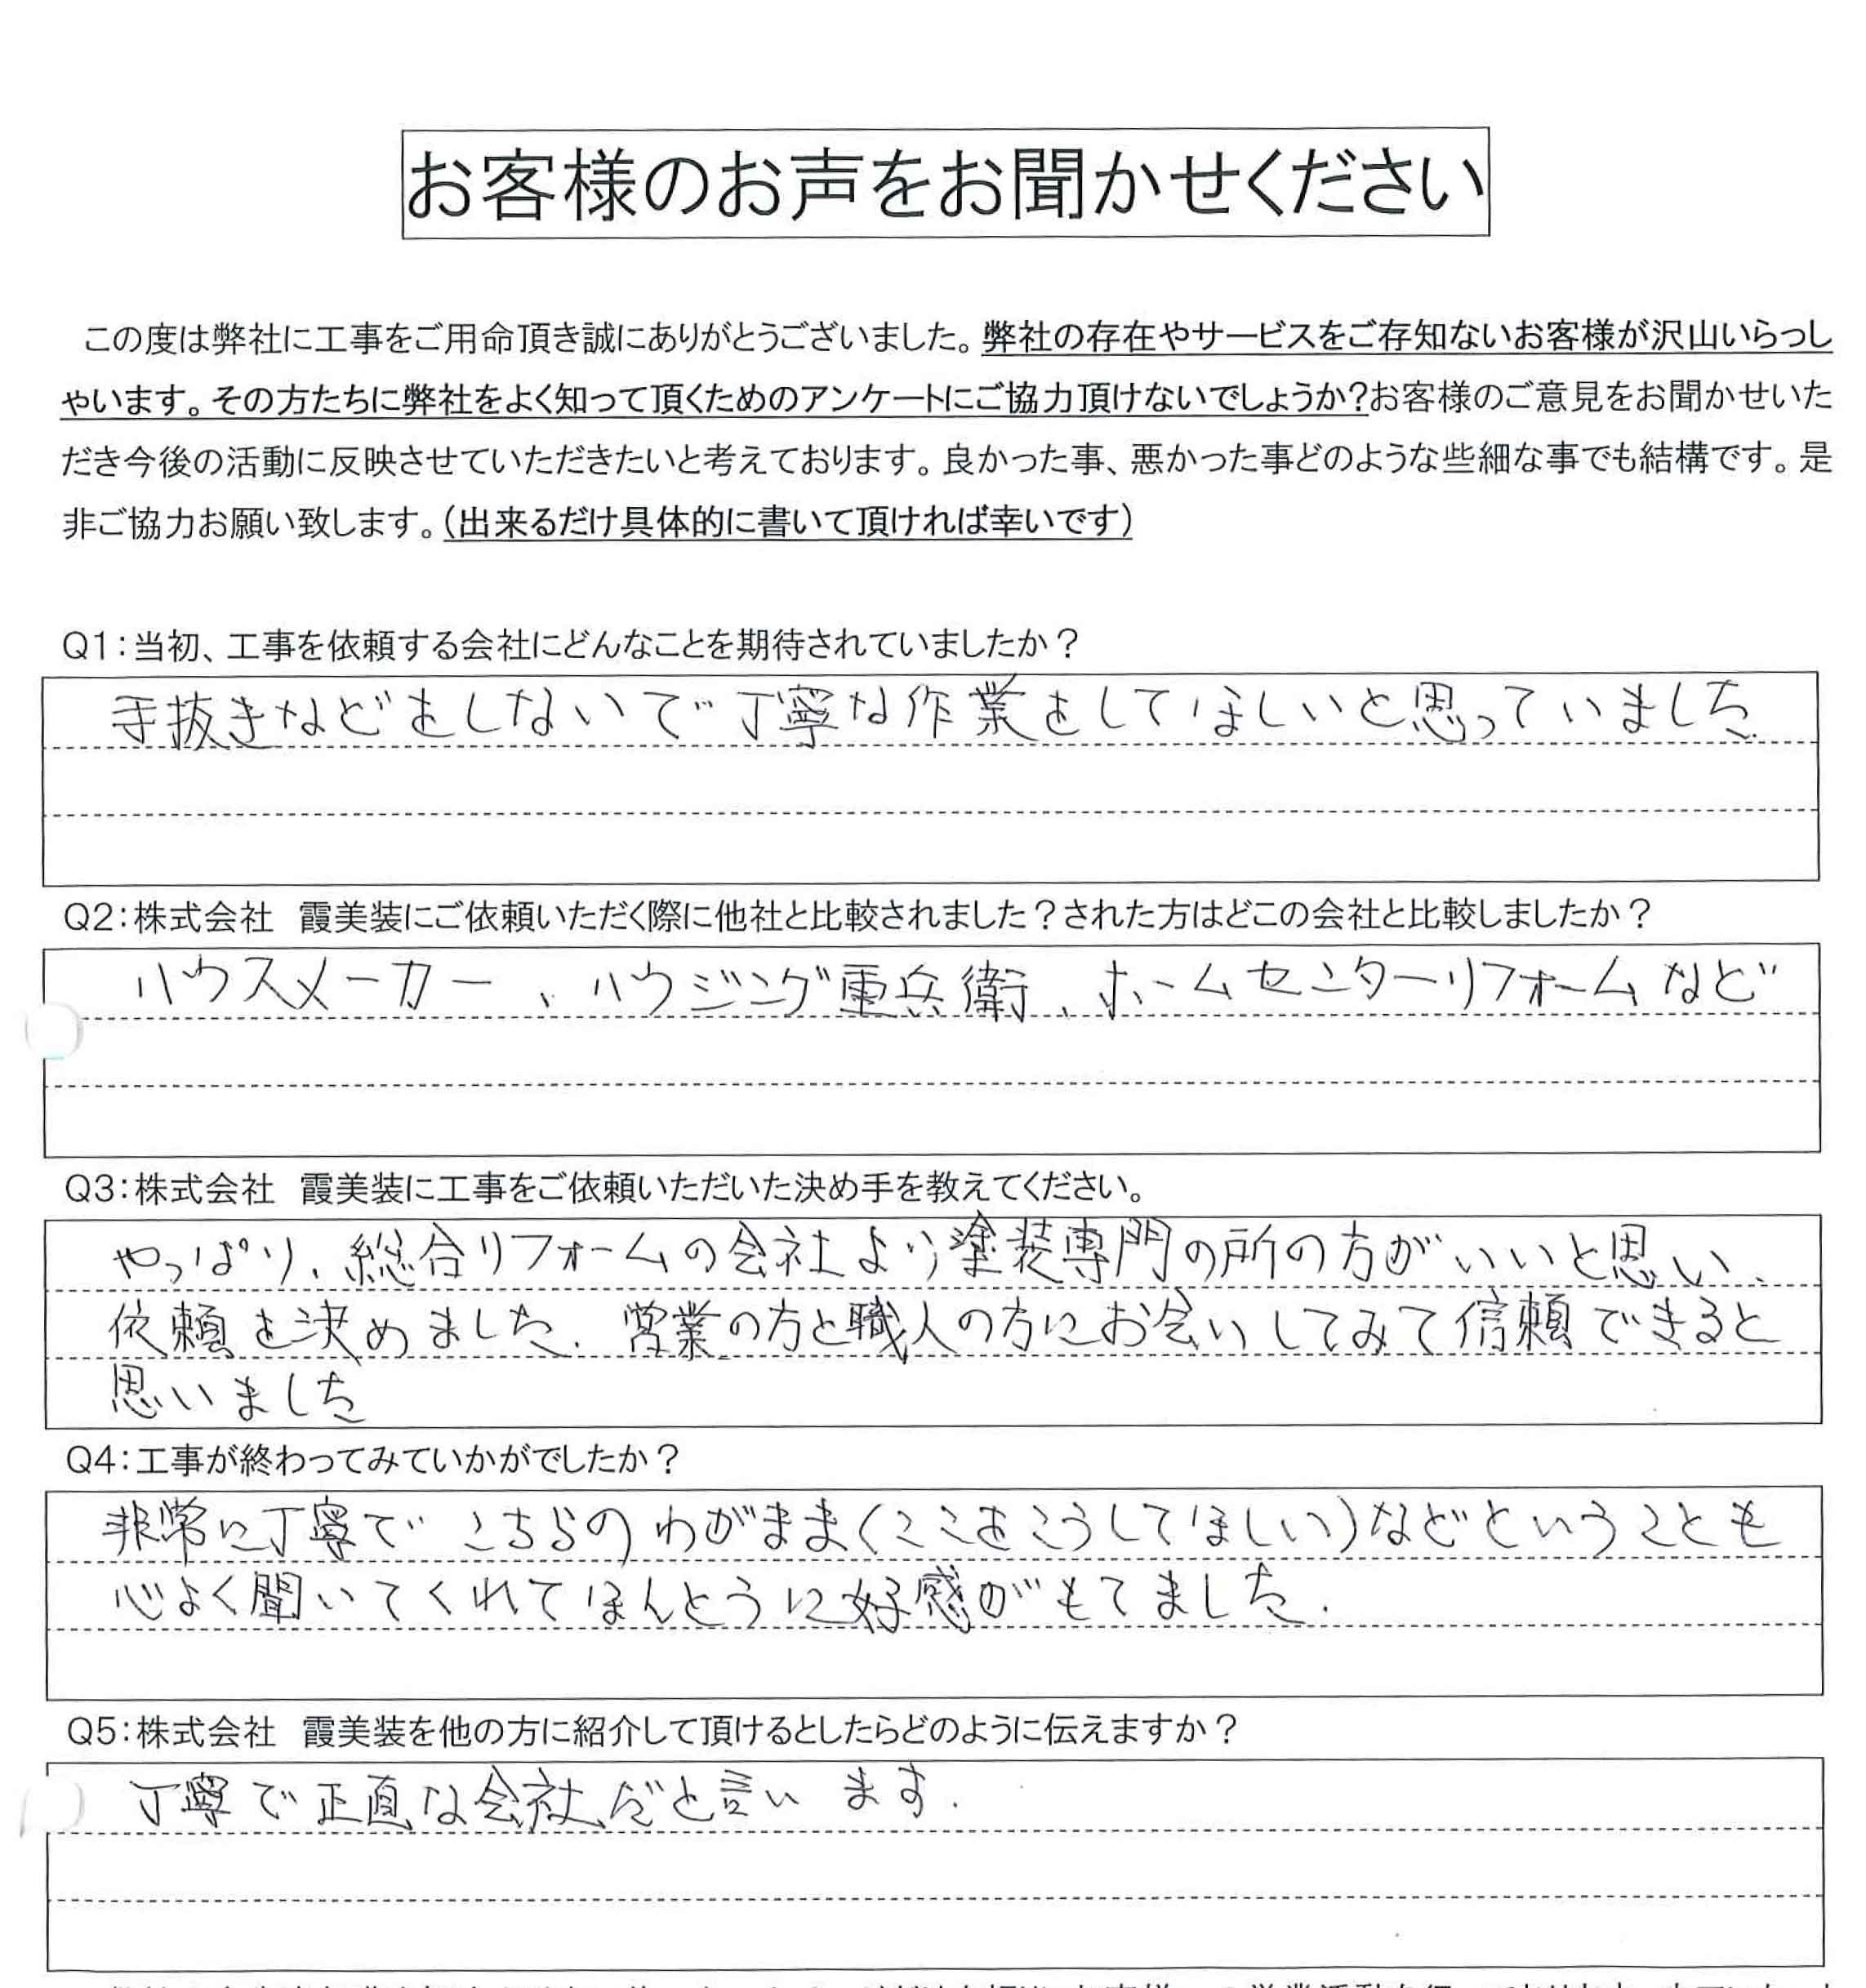 お客様のお声をお聞かせください
この度は弊社に工事をご用命頂き誠にありがとうございました。弊社の存在やサービスをご存知ないお客様が沢山いらっし
ゃいます。その方たちに弊社をよく知って頂くためのアンケートにご協力頂けないでしょうか?お客様のご意見をお聞かせいた
だき今後の活動に反映させていただきたいと考えております。良かった事、悪かった事どのような些細な事でも結構です。是
非ご協力お願い致します。(出来るだけ具体的に書いて頂ければ幸いです)
Q1:当初、工事を依頼する会社にどんなことを期待されていましたか?
手抜きなどをしないで丁寧な作業をしてほしいと思っていました
Q2:株式会社 霞美装にご依頼いただく際に他社と比較されました?された方はどこの会社と比較しましたか?
ハウスメーカー、ハウジング重兵衛、ホームセンターリフォームなど
Q3:株式会社 霞美装に工事をご依頼いただいた決め手を教えてください。
やっぱり、総合リフォームの会社より塗装専門の所の方がいいと思い、
依頼を決めました。営業の方と職人の方にお会いしてみて信頼できると
思いました
Q4:工事が終わってみていかがでしたか?
非常に丁寧で こちらのわがまま(ここをこうしてほしい)などということも
心よく聞いてくれてほんとうに好感がもてました.
Q5:株式会社 霞美装を他の方に紹介して頂けるとしたらどのように伝えますか?
丁寧で正直な会社だと言います.